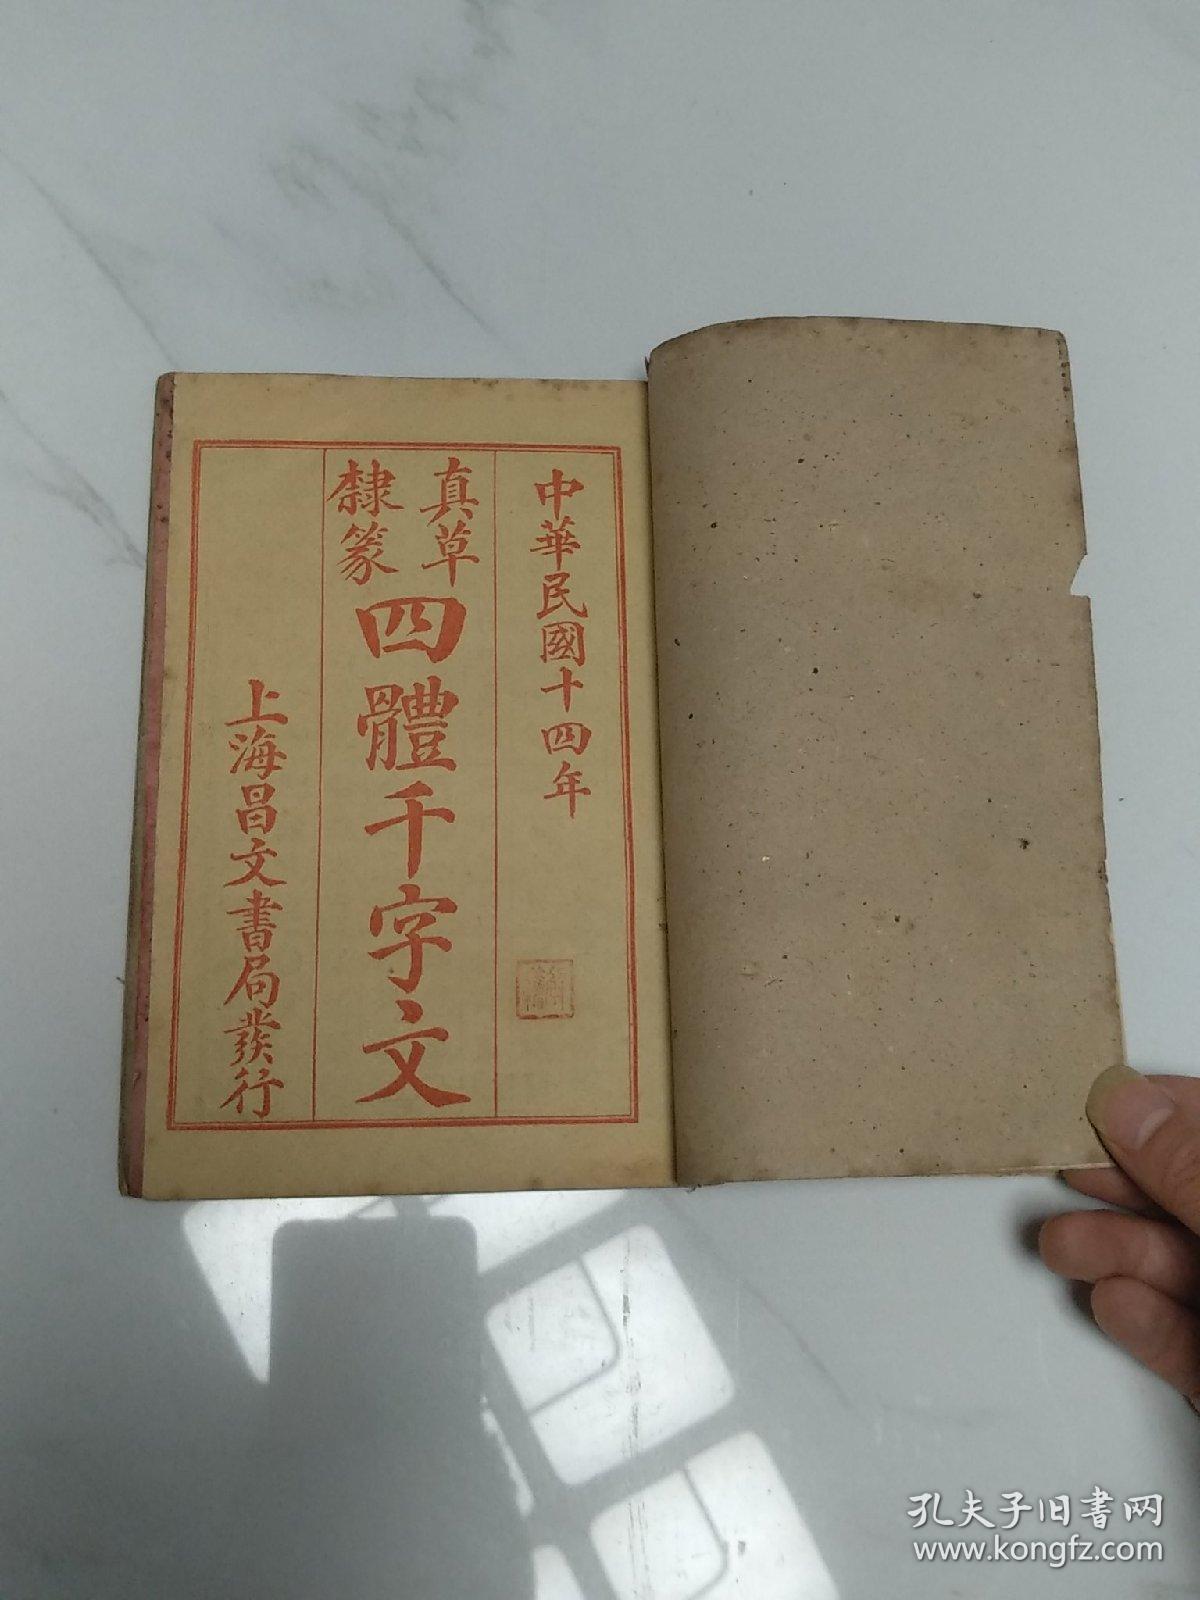 中華民國十四年
真草
隸篆
四體千字文
上海昌文書局發行
孔夫子旧书网
www.kongfz.com